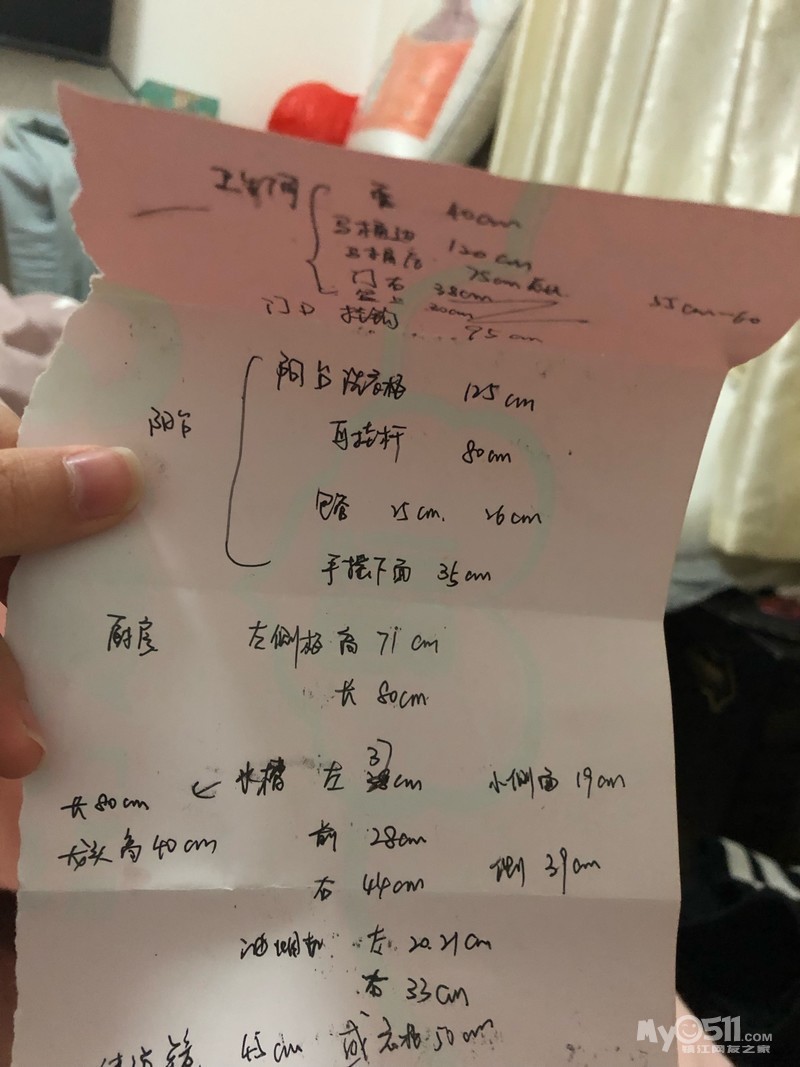 卫生间 40cm
马桶边 120cm
马桶后 75cm
门右 38cm 55cm-60
门口 挂钩 20cm
95cm
阳台 阳台洗衣柜 125cm
再挂杆 80cm
包管 25cm. 26cm
手摇下面 35cm
厨房 左侧柜 高 71cm
长 80cm
水槽 左 37cm 小侧面 19cm
长80cm
前 28cm
龙头高40cm
右 44cm 侧 39cm
油烟机 左 20.21cm
右 33cm
45cm 或 50cm
My0511.COM
镇江网友之家